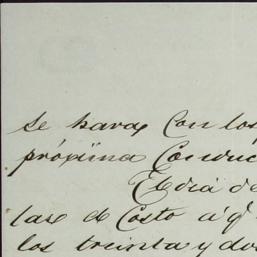 se haran con los
próxima Conduc
El dia de
las de Costo á q
los treinta y dos